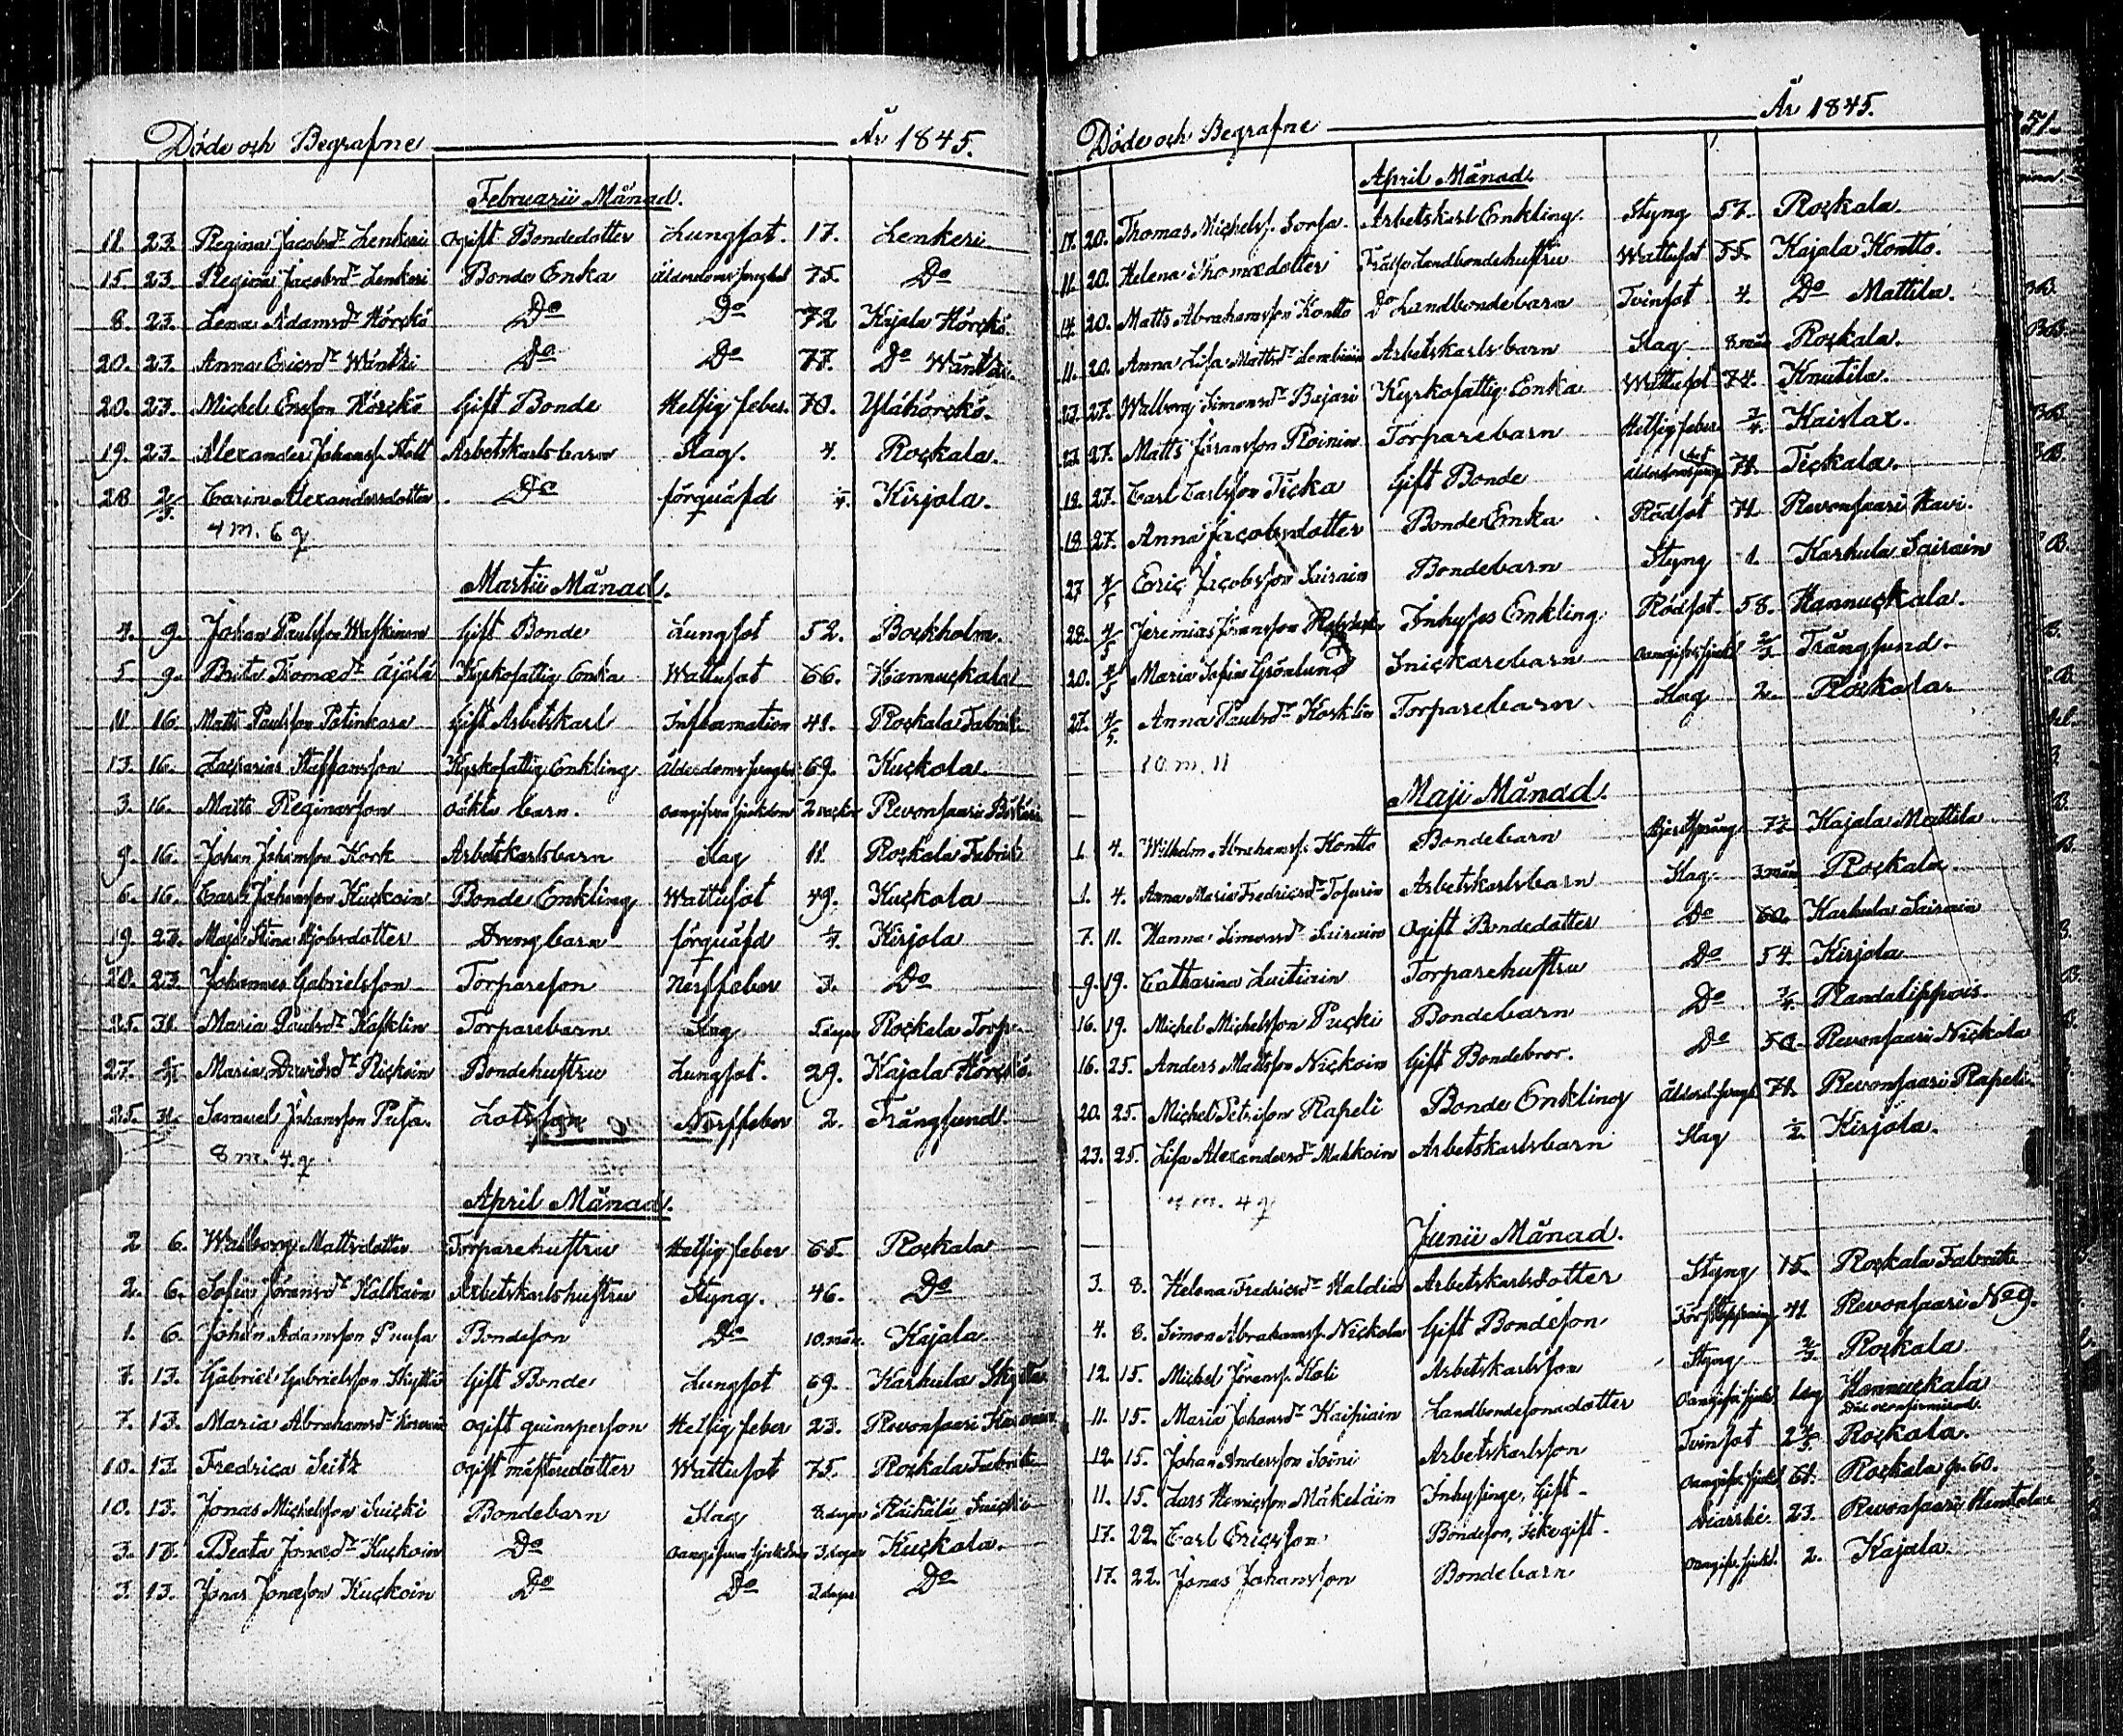 Döde och Begrafne År 1845.
Februarii Månad.
11. 23. Regina Jacobsdr Lenkeri ogift Bondedotter Lungsot. 17. Lenkeri
15. 23. Regina Jacobsdr Lenkeri Bonde Enka Ålderdoms svaghet 75. Do
8. 23. Lena Adamsdr Hörckö Do Do 72 Kajala Hörckö.
20. 23. Anna Ericsdr Wäntzi Do Do 77. Do Wäntzi.
20. 23. Michel Ersson Hörckö Gift Bonde Hetsig feber. 70. Ylähörckö.
19. 23. Alexander Johanss. Stolt Arbetskarlsbarn Slag. 4. Rockala.
28 2/3. Carin Alexandersdotter Do förqväfd 1/4. Kirjola.
4 m. 6 q
Martii Månad.
4. 9. Johan Paulsson Waskinen Gift Bonde Lungsot 52. Bockholm.
5. 9. Brita Thomædr Äjälä Kyrkofattig Enka Wattusot 66. Hannuckala
11 16. Matts Paulsson Potinkara Gift Arbetskarl Inflamation 41. Rockala Fabrik
13. 16. Zacharias Staffansson Kyrkofattig Enkling Ålderdoms svaghet 69. Kuckola.
3. 16. Matts Reginasson oäkta barn. oangifven sjukdom 2 veckor Revonsaari
9. 16. Johan Johansson Kork Arbetskarlsbarn Slag 11 Rockala Fabrik
6. 16. Carl Johansson Kuckoin Bonde Enkling Wattusot 49. Kuckola
19. 23. Maja Stina dotter Drengbarn förqväfd 1/4. Kirjola
20. 23 Johannes Gabrielsson Torpareson Nerffeber 3. Do
25. 31 Maria Paulsdr Kosklin Torparebarn Slag 5 dagar Rockala Torp
27. Maria Davidsdr Rickoin Bondehustru Lungsot. 29. Kajala Hörckö
25. 31. Samuel Johansson Pusa. Lotsson Nerffeber 2. Trångsund.
8 m. 4. q
April Månad.
2 6. Walborg Mattsdotter Torparehustru Hetsig feber 65. Rockala
2. 6. Sofia Göransdr Halkain Arbetskarlshustru Styng. 46. Do
1. 6. Johan Adamsson Puusa Bondeson Do 10. mån. Kajala
7. 13. Gabriel Gabrielsson Skyttä Gift Bonde Lungsot 69. Karhula Skyttä
7. 13. Maria Abrahamsdr ogift qvinsperson Hetsig feber 23. Revonsaari
10. 13. Fredrica Seitz ogift mästaredotter Wattusot 75. Rockala Fabrik
10. 13. Jonas Michelsson Suicki Bondebarn Slag 8 dagar Räihälä Suicki
3. 13. Beata Jonædr Kuckoin Do oangifven sjukdom 3. dagar Kuckola.
3. 13. Jonas Jonæson Kuckoin Do Do 3. dagar Do
Döde och Begrafne År 1845.
April Månad.
17. 20. Thomas Michelss. Sorsa. Arbetskarl Enkling. Styng 57. Rockala.
11. 20. Helena Thomædotter Frälse Landbondehustru Wattusot 55. Kajala Kontto.
14. 20. Matts Abrahamsson Kontto Do Landbondebarn Tvinsot 4. Do Mattila.
11. 20. Anna Lisa Mattsdr Arbetskarlsbarn Slag 8. mån Rockala.
23. 27. Walborg Simonsdr Bajari Kyrkofattig Enka Wattusot 74. Knutila.
23 27. Matts Göransson Roinin Torparebarn Hetsig feber 3/4. Kaislax.
19. 27. Carl Carlsson Ticka Gift Bonde Ålderdoms svaghet 74. Tickala.
18 27. Anna Jacobsdotter Bonde Enka Rödsot 71 Revonsaari Havi.
27 4/5 Eric Jacobsson Sairain Bondebarn Styng 1. Karhula Sairain
28. 4/5 Jeremias Göransson Inhyses Enkling. Rödsot 58. Hannuckala.
20. 4/5 Maria Sofia Grönlund Snickarebarn oangifven sjukd 2/3. Trångsund.
27. 4/5. Anna Paulsdr Kosklin Torparebarn Slag 2. Rockala
10 m. 11
Maji Månad.
1 4. Wilhelm Abrahamss. Kontto Bondebarn 7 1/2 Kajala Mattila
1. 4. Anna Maria Fredricsdr Tofurin Arbetskarlsbarn Slag 3. mån Rockala.
7. 11. Hanna Simonsdr Sairain Ogift Bondedotter Do 60. Karhula Sairain
9. 19. Catharina Luitiain Torparehustru Do 54. Kirjola
16. 19. Michel Michelsson Pucki Bondebarn Do 3/4. Randalippois.
16. 25. Anders Mattsson Nickoin Gift Bondebror. Do 50. Revonsaari Nickola
20. 25. Michel Petrisson Rapeli Bonde Enkling Ålderd. svagh. 74. Revonsaari Rapeli
23. 25. Lisa Alexandersdr Makkoin Arbetskarlsbarn Slag 1/2. Kirjola.
4 m. 4 q
Junii Månad.
3. 8. Helena Fredricsdr Haldin Arbetskarlsdotter Styng 15. Rockala Fabrik
4. 8. Simon Abrahamss. Nickola Gift Bondeson 41. Revonsaari No 9.
12. 15. Michel Göranss. Koli Arbetskarlsson Styng 2/3. Rockala
11. 15. Maria Johansdr Kaipiain Landbondesonsdotter Oangifv. sjukd. 1 dag Hannuckala
12. 15. Johan Andersson Soini Arbetskarlsson Tvinsot 2 2/5 Rockala.
11. 15. Lars Henricsson Mäkeläin Inhysinge, Gift. Oangifv. sjukd 61. Rockala 60.
17. 22. Carl Ericsson Bondeson, icke gift. Diarrhé. 23. Revonsaari
17. 22. Jonas Johansson Bondebarn Oangifv. sjukd. 2. Kajala.